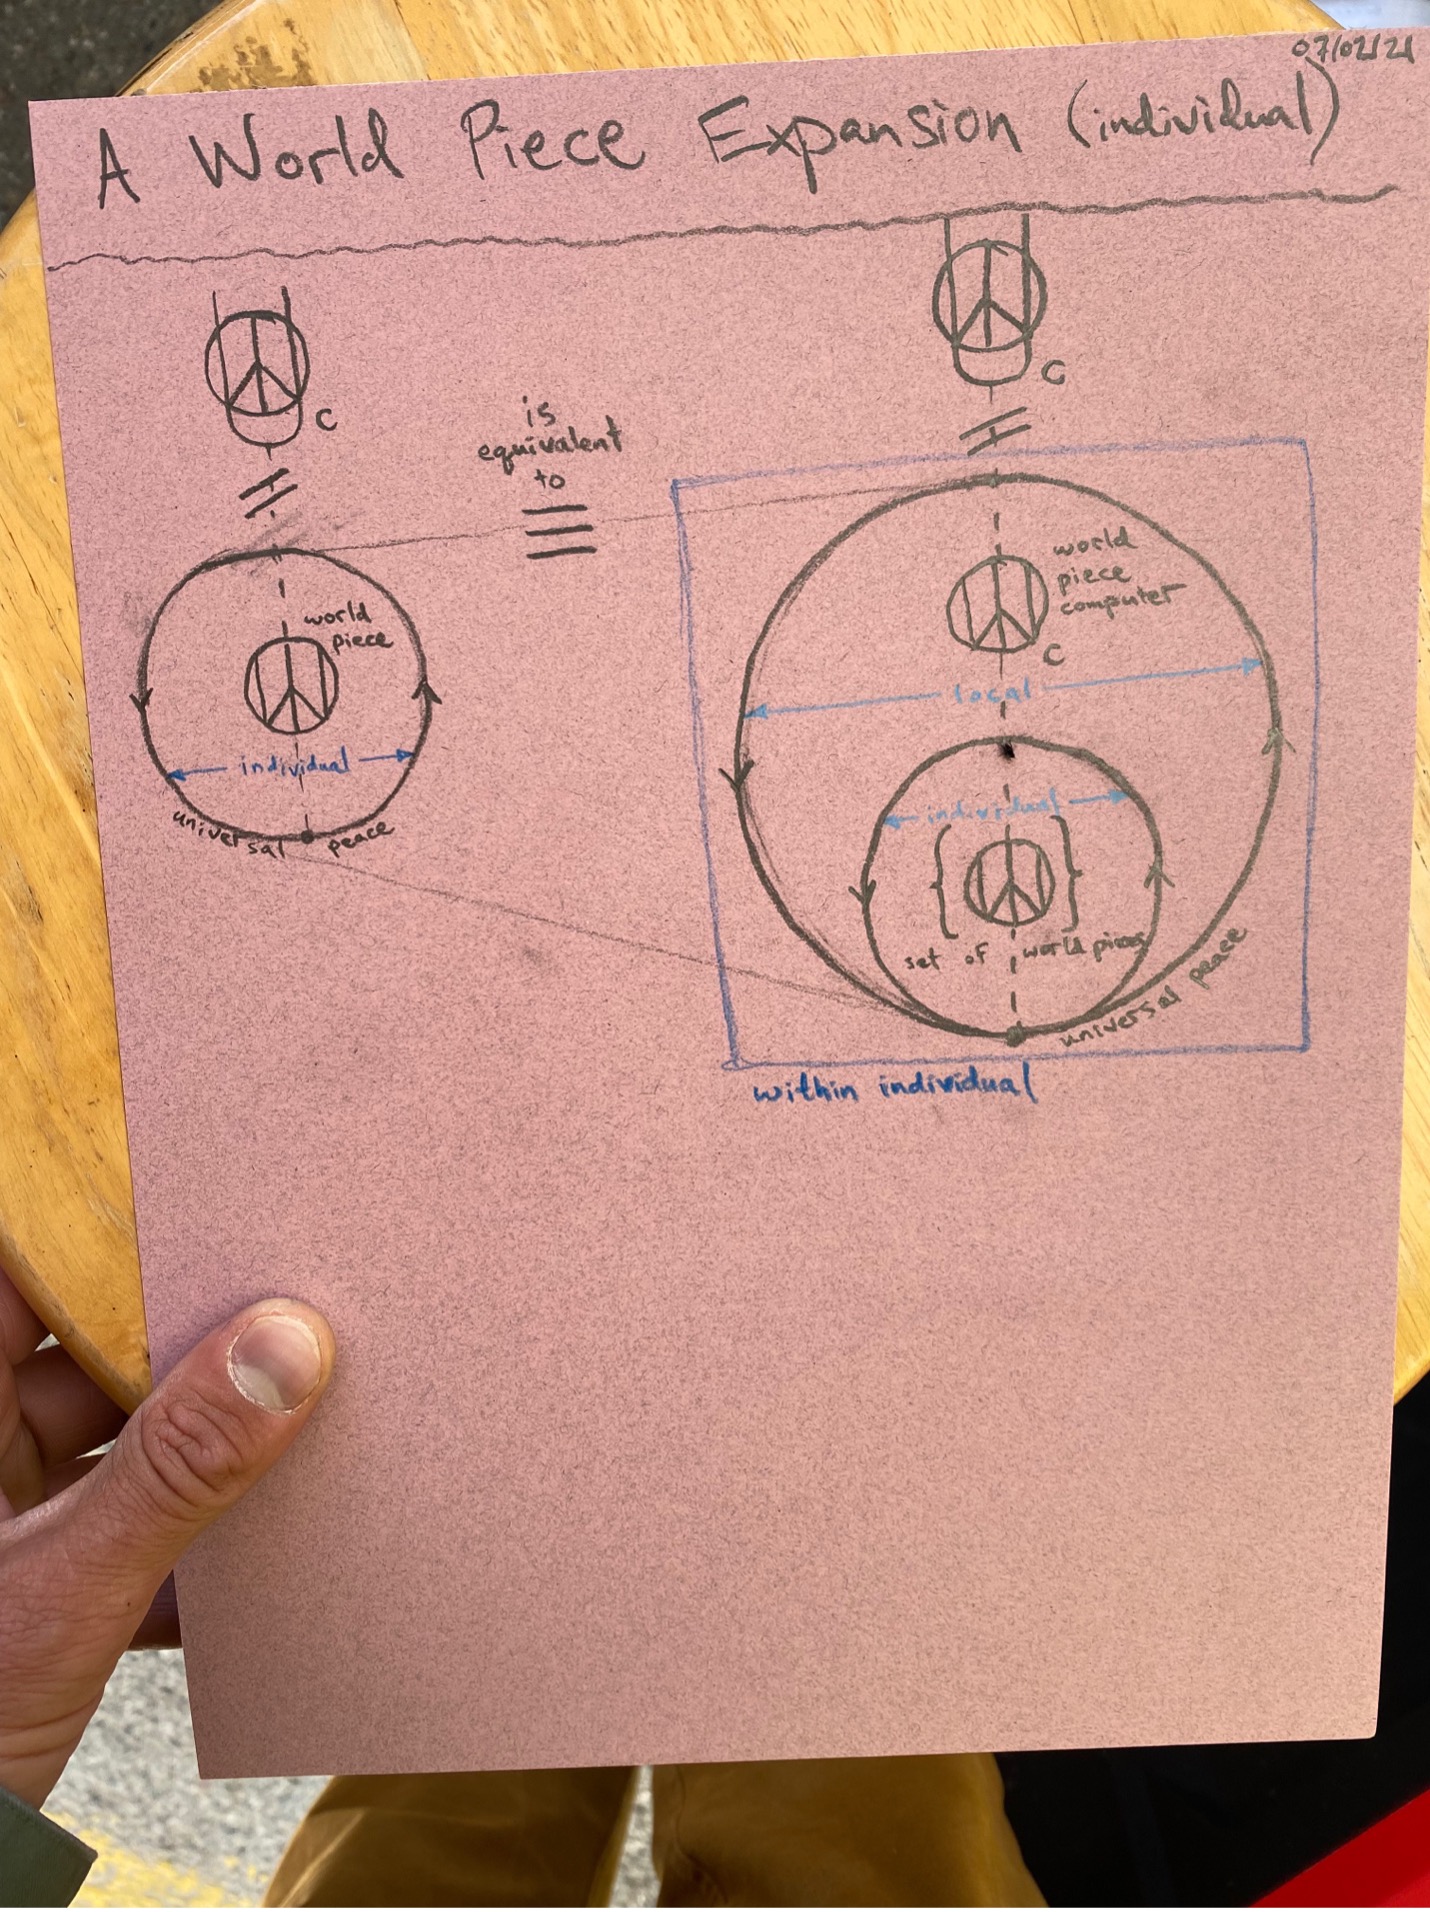 07/02/21
A World Piece Expansion (individual)
C
is
equivalent
to
world
piece
individual
universal peace
C
world
piece
computer
C
local
individual
set of world pieces
universal peace
within individual